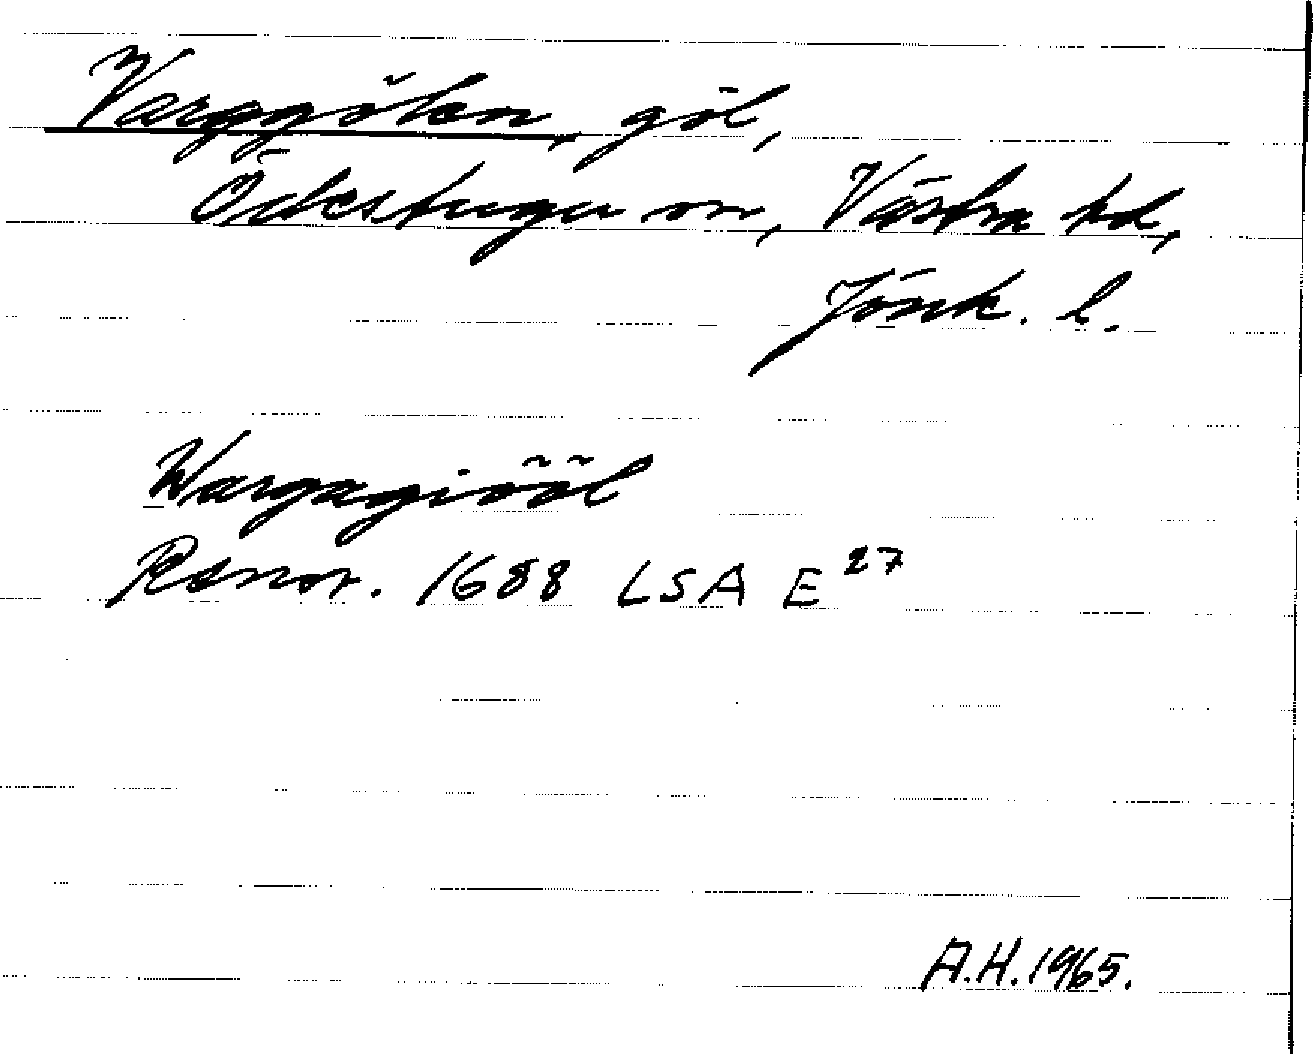 Varggölen, göl,
Ödestugu sn, Västra hd,
Jönk. l.
Wargagiööl
Rannr. 1688 LSA E 27
A.H. 1965.